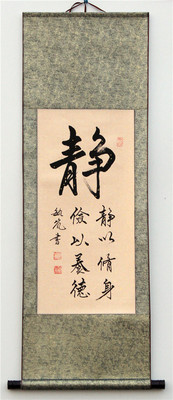 静
静以修身
俭以养德
敏苑书